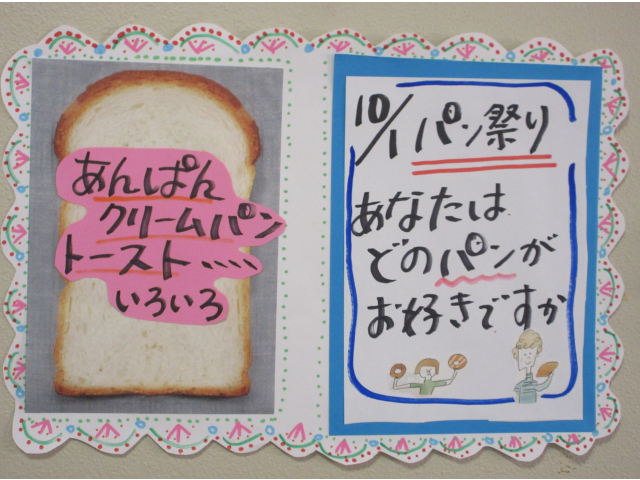 あんぱん
クリームパン
トースト、、、、
いろいろ
10/1 パン祭り
あなたは
どのパンが
お好きですか